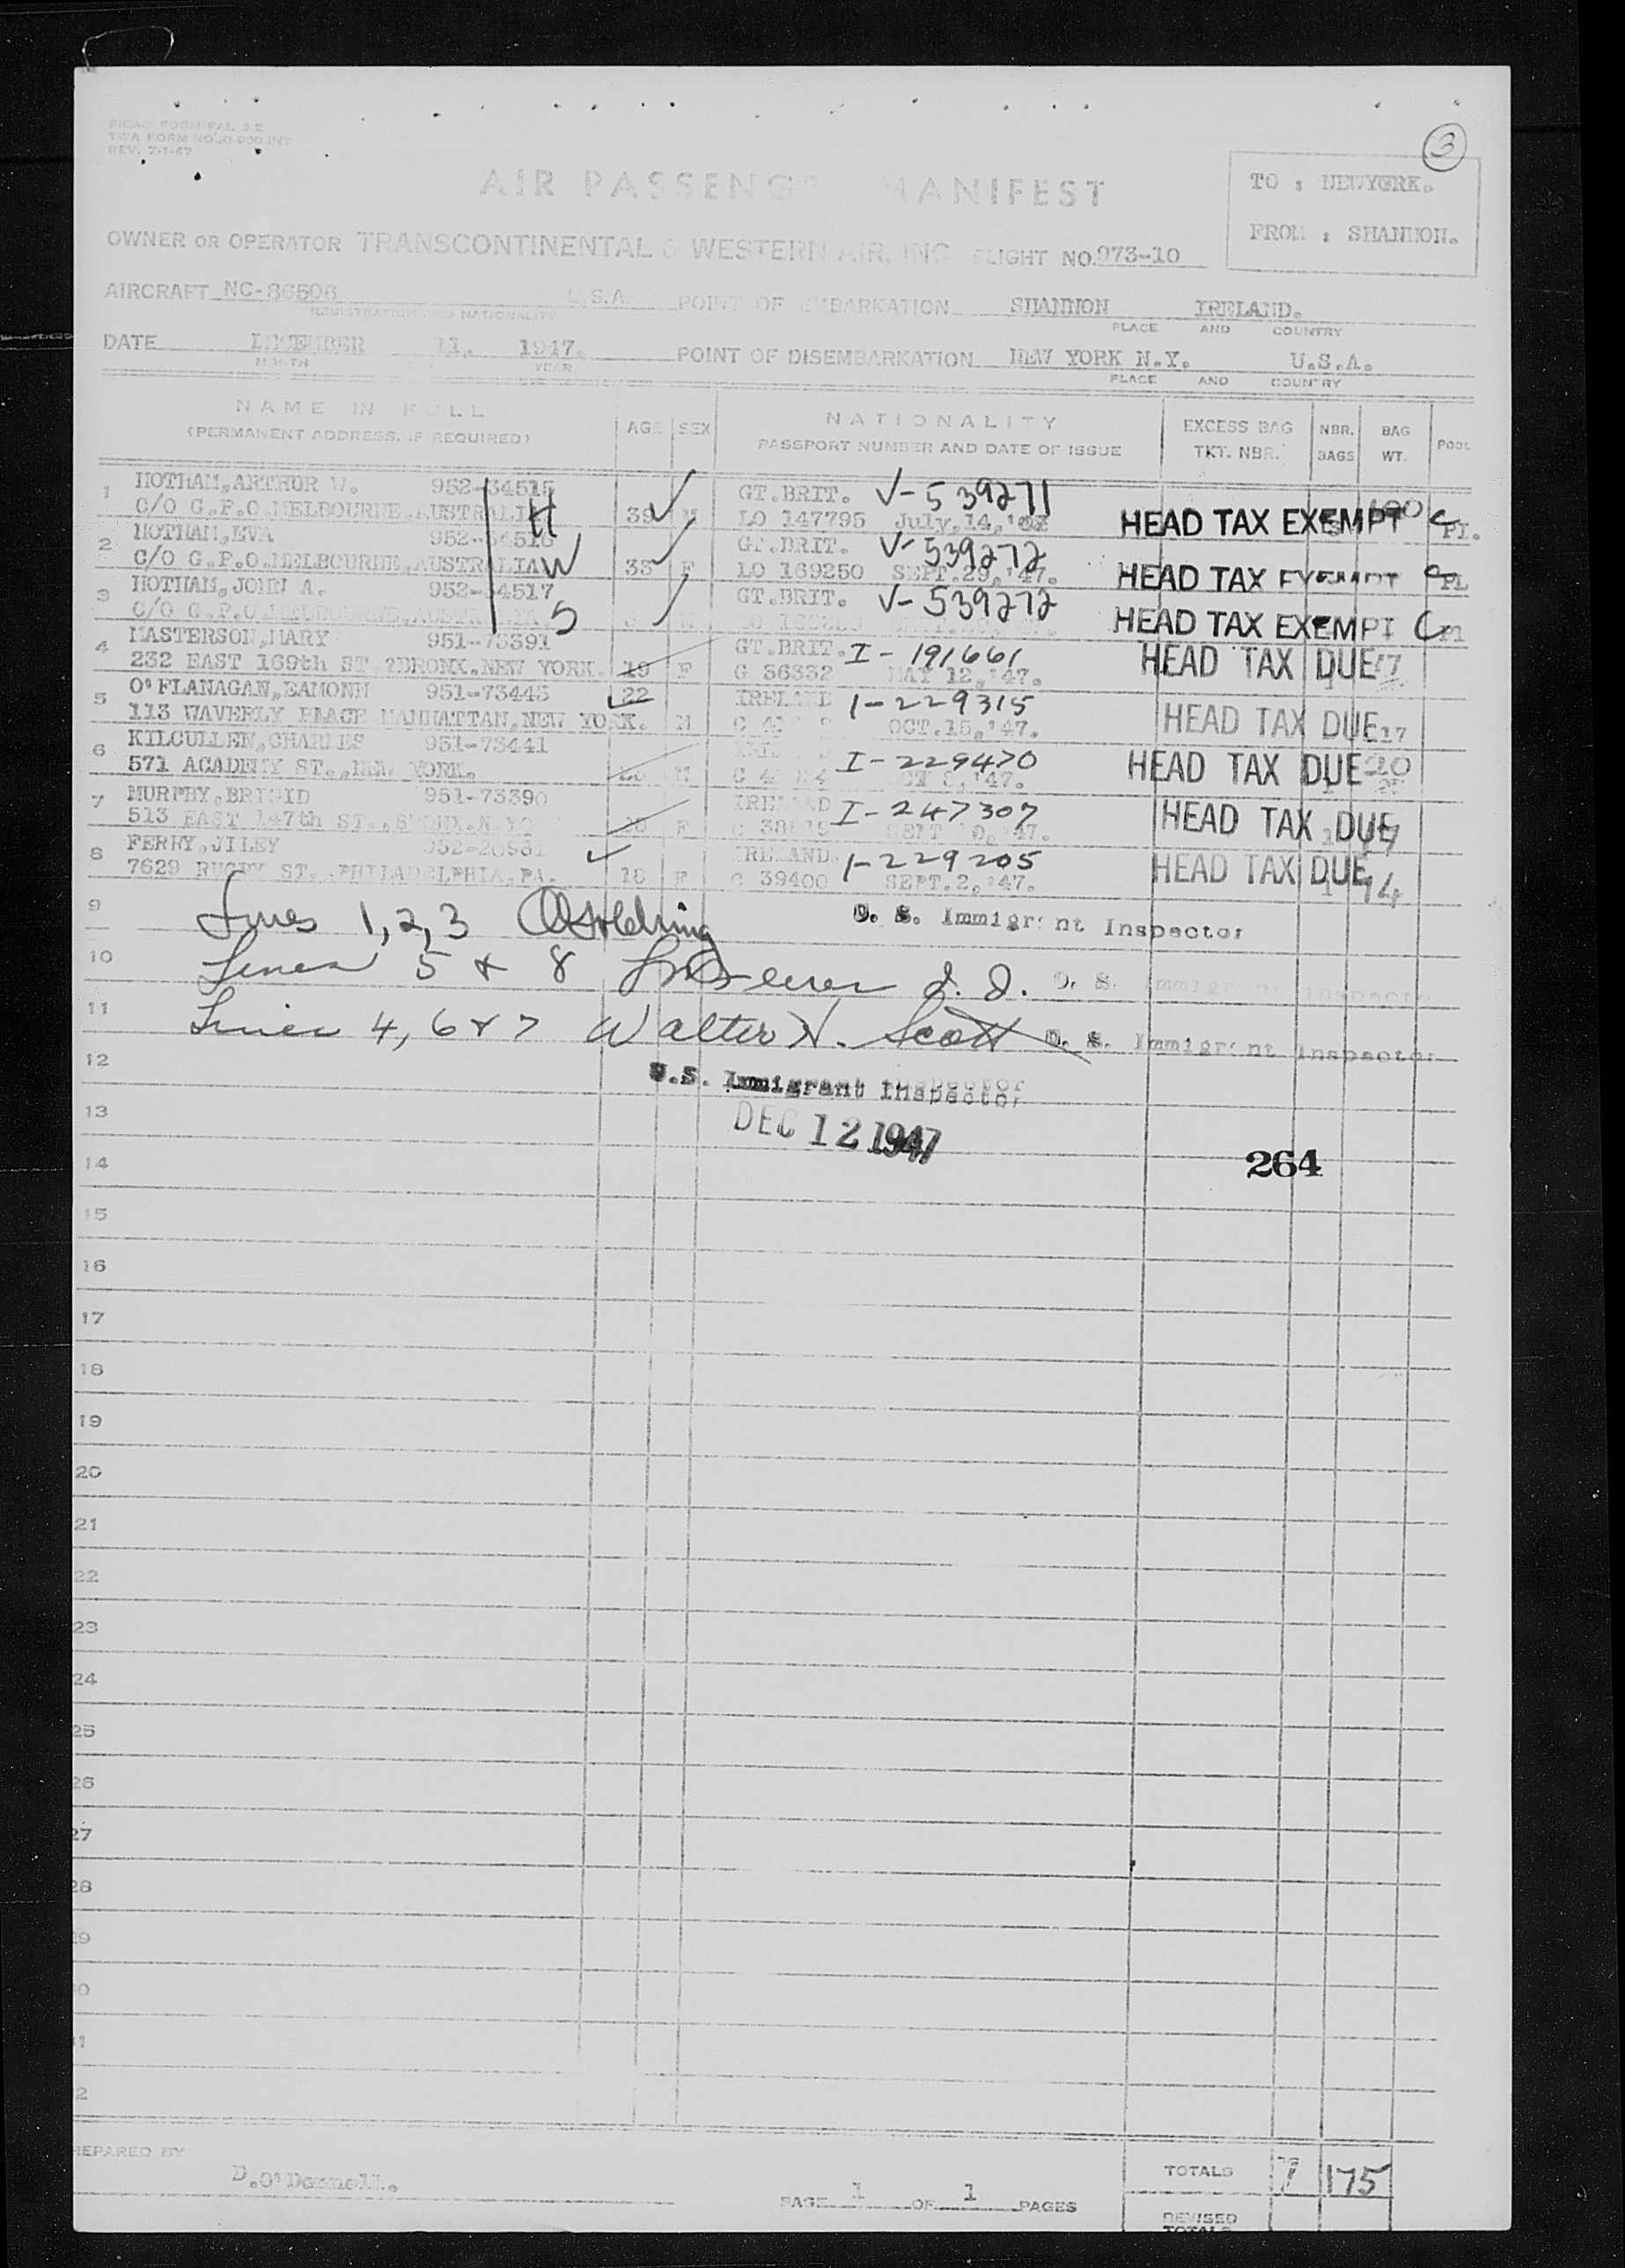 3
PICAO FORM FAL 3.2
TWA FORM NO.
REV. 7-1-47
AIR PASSENG MANIFEST
TO : NEWYORK.
FROM : SHANNON.
OWNER OR OPERATOR TRANSCONTINENTAL & WESTERN AIR, INC. FLIGHT NO. 973-10
AIRCRAFT NC-86506 U.S.A. POINT OF EMBARKATION SHANNON IRELAND.
REGISTRATION AND NATIONALITY PLACE AND COUNTRY
DATE DECEMBER 11, 1947. POINT OF DISEMBARKATION NEW YORK N.Y. U.S.A.
MONTH YEAR PLACE AND COUNTRY
NAME IN FULL
(PERMANENT ADDRESS, IF REQUIRED)
AGE SEX
NATIONALITY
PASSPORT NUMBER AND DATE OF ISSUE
EXCESS BAG
TKT. NBR.
NBR.
BAGS
BAG
WT.
POOL
1 HOTHAM,ARTHUR W. 952-34515 GT.BRIT. V-539271
C/O G.P.O.MELBOURNE,AUSTRALIA H 39 M LO 147795 July,14, HEAD TAX EXEMPT PL.
2 HOTHAM,EVA 952-34516 GT.BRIT. V-539272
C/O G.P.O.MELBOURNE,AUSTRALIA W 33 F LO 169250 SEPT.29,'47. HEAD TAX EXEMPT PL
3 HOTHAM,JOHN A. 952-34517 GT.BRIT. V-539272
C/O G.P.O.MELBOURNE,AUSTRALIA S HEAD TAX EXEMPT
4 MASTERSON,MARY 951-73391 GT.BRIT. I-191661
232 EAST 169th ST.?BRONX,NEW YORK. 19 F G 36332 MAY 12,'47. HEAD TAX DUE 17
5 O'FLANAGAN,EAMONN 951-73445 22 IRELAND 1-229315
113 WAVERLY PLACE MANHATTAN,NEW YORK. M OCT.15,'47. HEAD TAX DUE 17
6 KILCULLEN,CHARLES 951-73441 I-229470
571 ACADEMY ST.,NEW YORK. M OCT 8,'47. HEAD TAX DUE 20
7 MURPHY,BRIGID 951-73390 IRELAND I-247307
513 EAST 147th ST.,BRONX.N. F SEPT '47. HEAD TAX DUE
8 FERRY,JILEY 952-20961 IRELAND. 1-229205
7629 RUGBY ST.,PHILADELPHIA,PA. 18 F C 39400 SEPT.2,'47. HEAD TAX DUE 14
9 Lines 1,2,3 U. S. Immigrant Inspector
10 Lines 5 & 8 U. S. Immigrant Inspector
11 Lines 4, 6 & 7 Walter N. Scott U. S. Immigrant Inspector
12 U.S. Immigrant Inspector
13 DEC 12 1947
14 264
15
16
17
18
19
20
21
22
23
24
25
26
27
28
29
30
31
32
PREPARED BY D.O'Donnell.
PAGE 1 OF 1 PAGES
TOTALS 7 175
REVISED
TOTALS